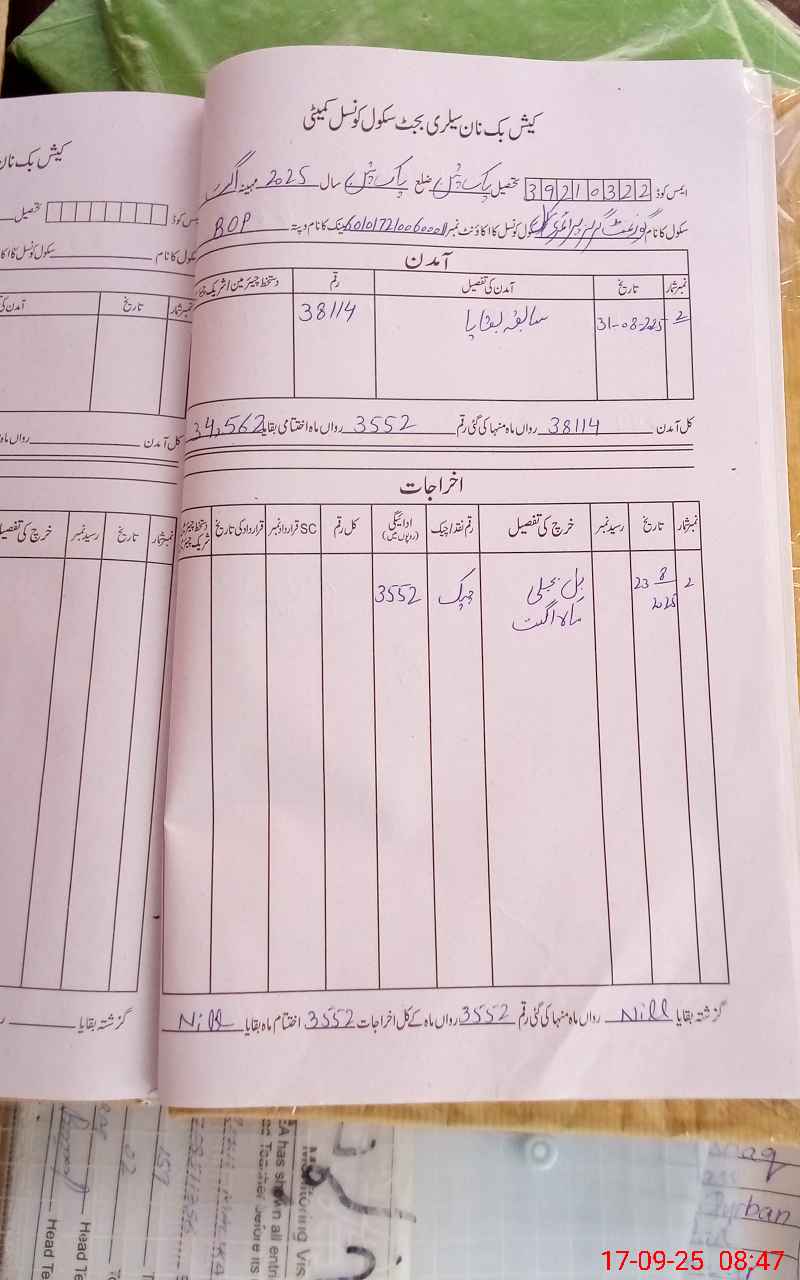 کیش بک نان سیلری بجٹ سکول کونسل کمیٹی
ایمس کوڈ 39210322 تحصیل پاکپتن ضلع پاکپتن سال 2025 مہینہ اگست
سکول کا نام گورنمنٹ گرلز پرائمری سکول کونسل کا اکاؤنٹ نمبر بینک کا نام و پتہ BOP
آمدن
نمبر شمار تاریخ آمدن کی تفصیل رقم دستخط چیئرمین/شریک چیئر
2 31-08-2025 سابقہ بقایا 38114
کل آمدن 38114 رواں ماہ منہا کی گئی رقم 3552 رواں ماہ اختتامی بقایا 34,562
اخراجات
نمبر شمار تاریخ رسید نمبر خرچ کی تفصیل رقم نقد/چیک ادائیگی (روپوں میں) کل رقم SC قرارداد نمبر قرارداد کی تاریخ دستخط چیئر شریک چیئر
2 23 8 2025 بل بجلی چیک 3552
ماہ اگست
گزشتہ بقایا Nill رواں ماہ منہا کی گئی رقم 3552 رواں ماہ کے کل اخراجات 3552 اختتام ماہ بقایا Nill
کیش بک نان
ایمس کوڈ تحصیل
سکول کا نام
نمبر شمار تاریخ آمدن کی
کل آمدن رواں ماہ
نمبر شمار تاریخ رسید نمبر خرچ کی تفصیل
گزشتہ بقایا
Monitoring Vis
EA has shown all entri
Head Te
Head Te
02
157
17-09-25 08:47